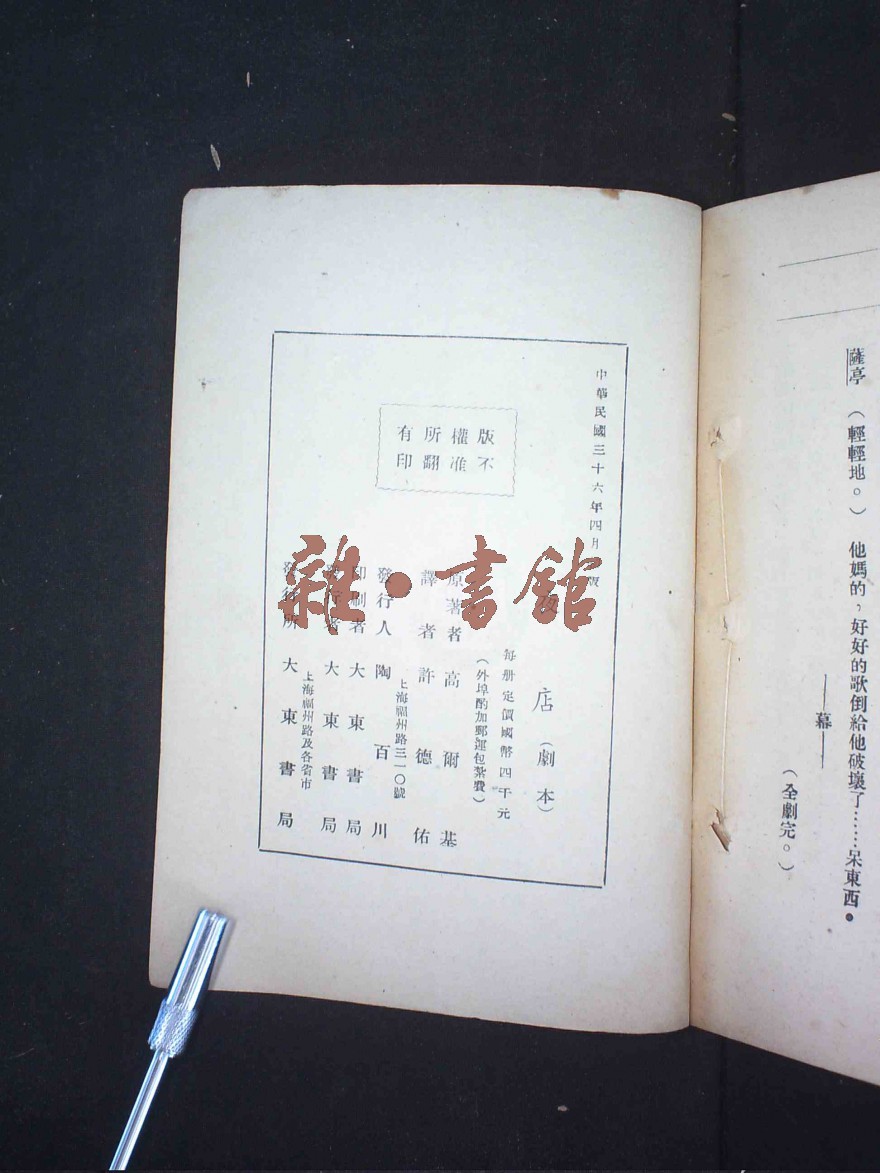 薩亭　（輕輕地。）　他媽的，好好的歌倒給他破壞了……呆東西。
——幕——
（全劇完。）
中華民國三十六年四月　版
版權所有
不准翻印
夜店（劇本）
每册定價國幣四千元
（外埠酌加郵運包紮費）
原著者　高爾基
譯者　許德佑
上海福州路三一〇號
發行人　陶百川
印刷者　大東書局
發行者　大東書局
上海福州路及各省市
發行所　大東書局
雜·書館